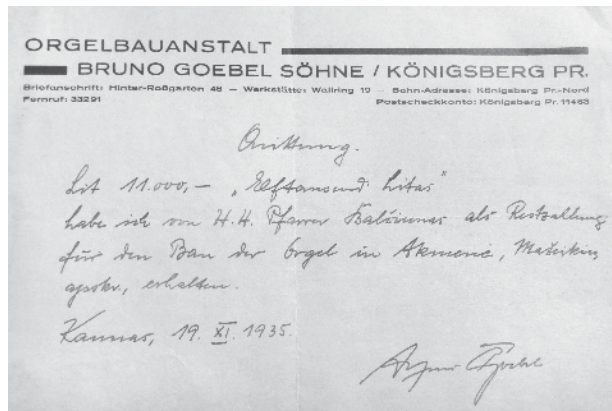 ORGELBAUANSTALT
BRUNO GOEBEL SÖHNE / KÖNIGSBERG PR.
Briefanschrift: Hinter-Roßgarten 48 — Werkstätte: Wallring 12 — Bahn-Adresse: Königsberg Pr.-Nord
Fernruf: 33291 Postscheckkonto: Königsberg Pr. 11463
Quittung.
Lit 11.000,– „Elftausend Litas"
habe ich von H. H. Pfarrer als Restzahlung
für den Bau der Orgel in Akmenė, Mažeikių
apskr., erhalten.
Kaunas, 19. XI. 1935.
Goebel